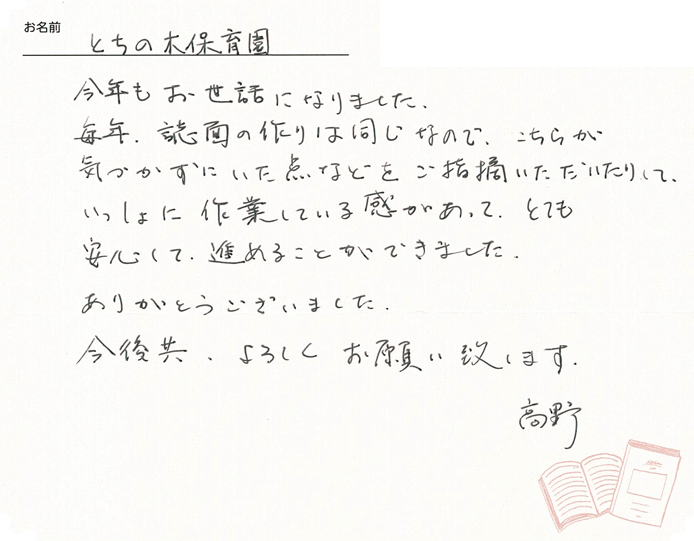 お名前 とちの木保育園
今年もお世話になりました.
毎年、誌面の作りは同じなので、こちらが
気づかずにいた点などをご指摘いただいたりして、
いっしょに作業している感があって、とても
安心して、進めることができました.
ありがとうございました.
今後共、よろしくお願い致します.
高野